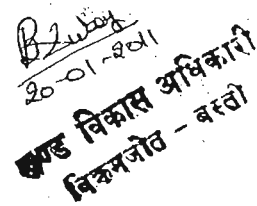 20-01-2011
खण्ड विकास अधिकारी
विक्रमजोत - बस्ती